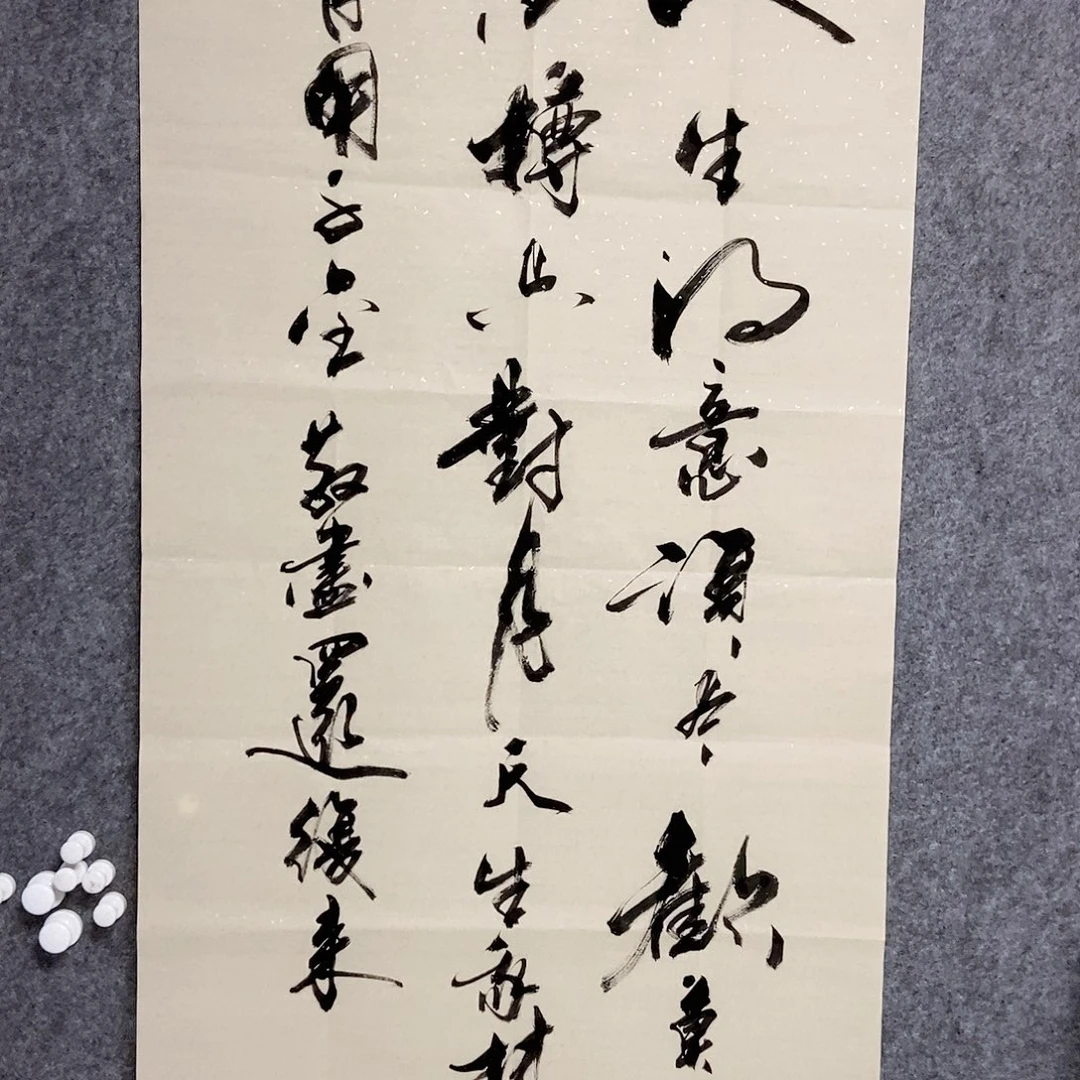 人生得意須尽歡莫
金樽空對月天生我材
有用千金散盡還復来